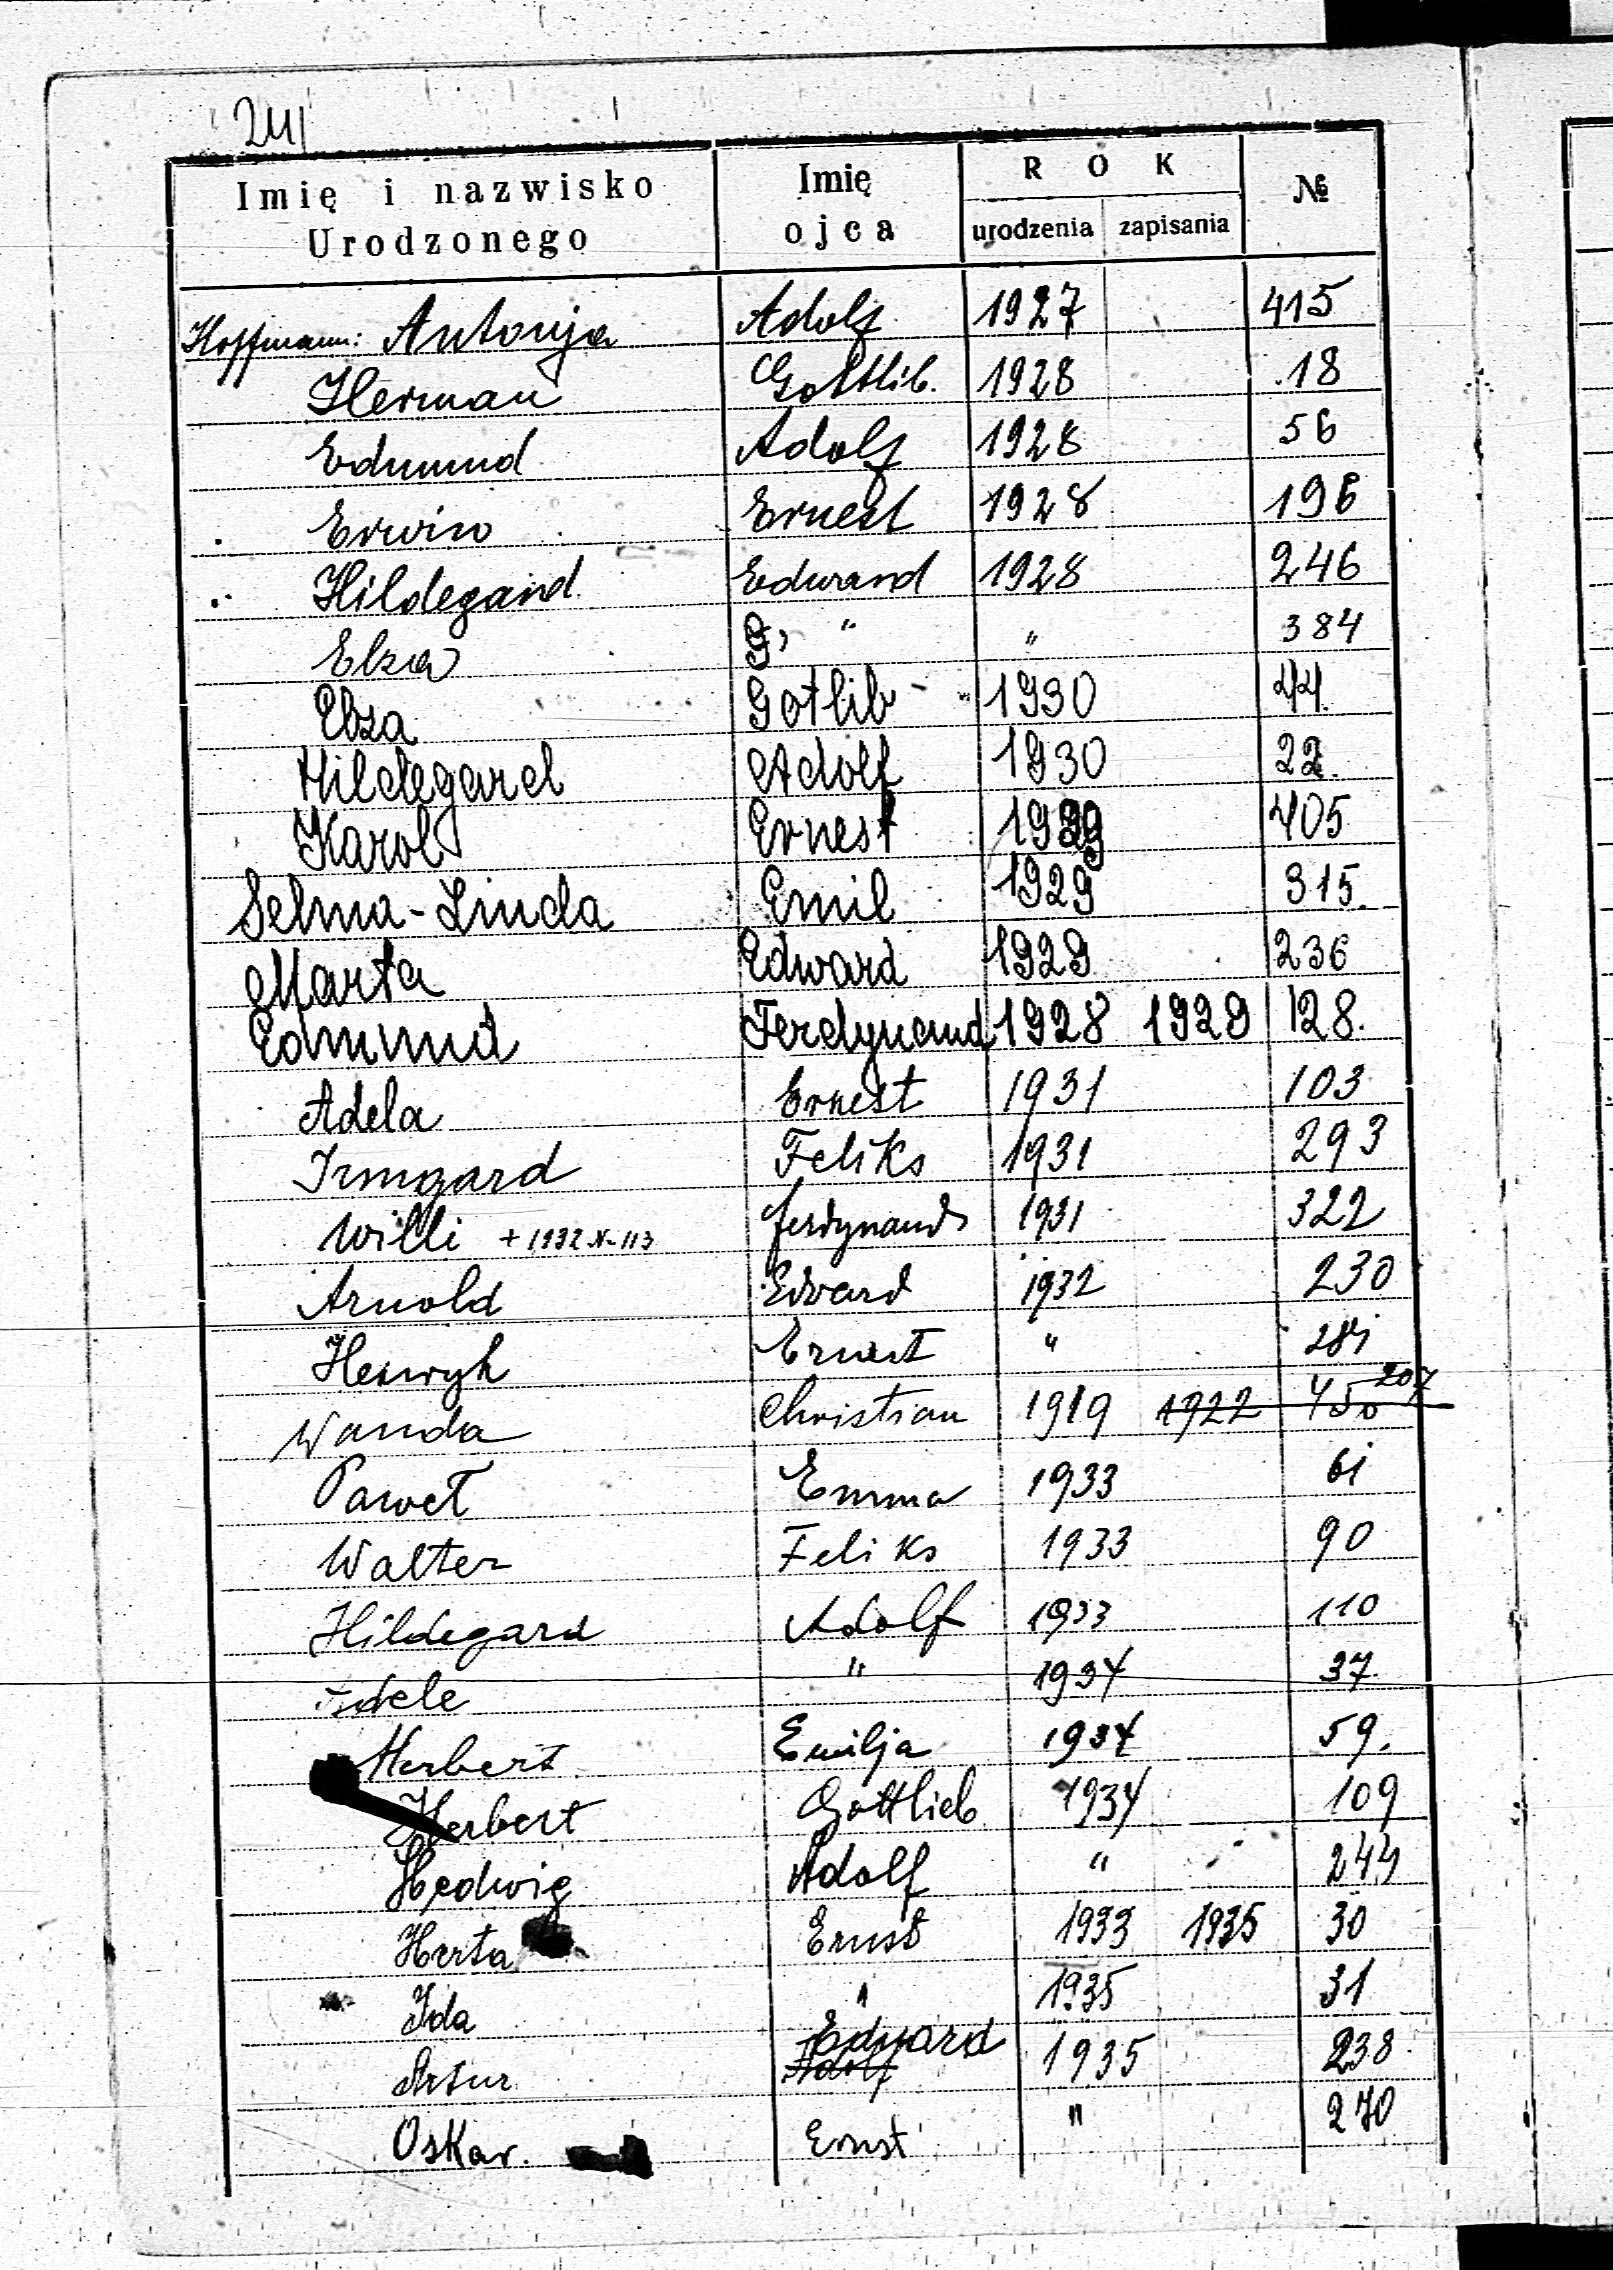 241
Imię i nazwisko Urodzonego Imię ojca ROK urodzenia zapisania №
Hoffmann: Antonja Adolf 1927 415
Herman Gottlib. 1928 18
Edmund Adolf 1928 56
Erwin Ernest 1928 196
Hildegard Edward 1928 246
Elza " " 384
Elza Gotlib 1930 44.
Hildegard Adolf 1930 22.
Karol Ernest 1929 405
Selma-Linda Emil 1929 315.
Marta Edward 1929 236
Edmund Ferdynand 1928 1929 128.
Adela Ernest 1931 103
Irmgard Feliks 1931 293
Willi + 1932 N-113 Ferdynand 1931 322
Arnold Edward 1932 230
Henryk Ernest " 281
Wanda Christian 1919 1922 450 207
Paweł Emma 1933 61
Walter Feliks 1933 90
Hildegard Adolf 1933 110
Adele " 1934 37.
Herbert Emilja 1934 59.
Herbert Gottlieb 1934 109
Hedwig Adolf " 244
Herta Ernst 1933 1935 30
Ida " 1935 31
Artur Adolf Eduard 1935 238
Oskar. Ernst " 270